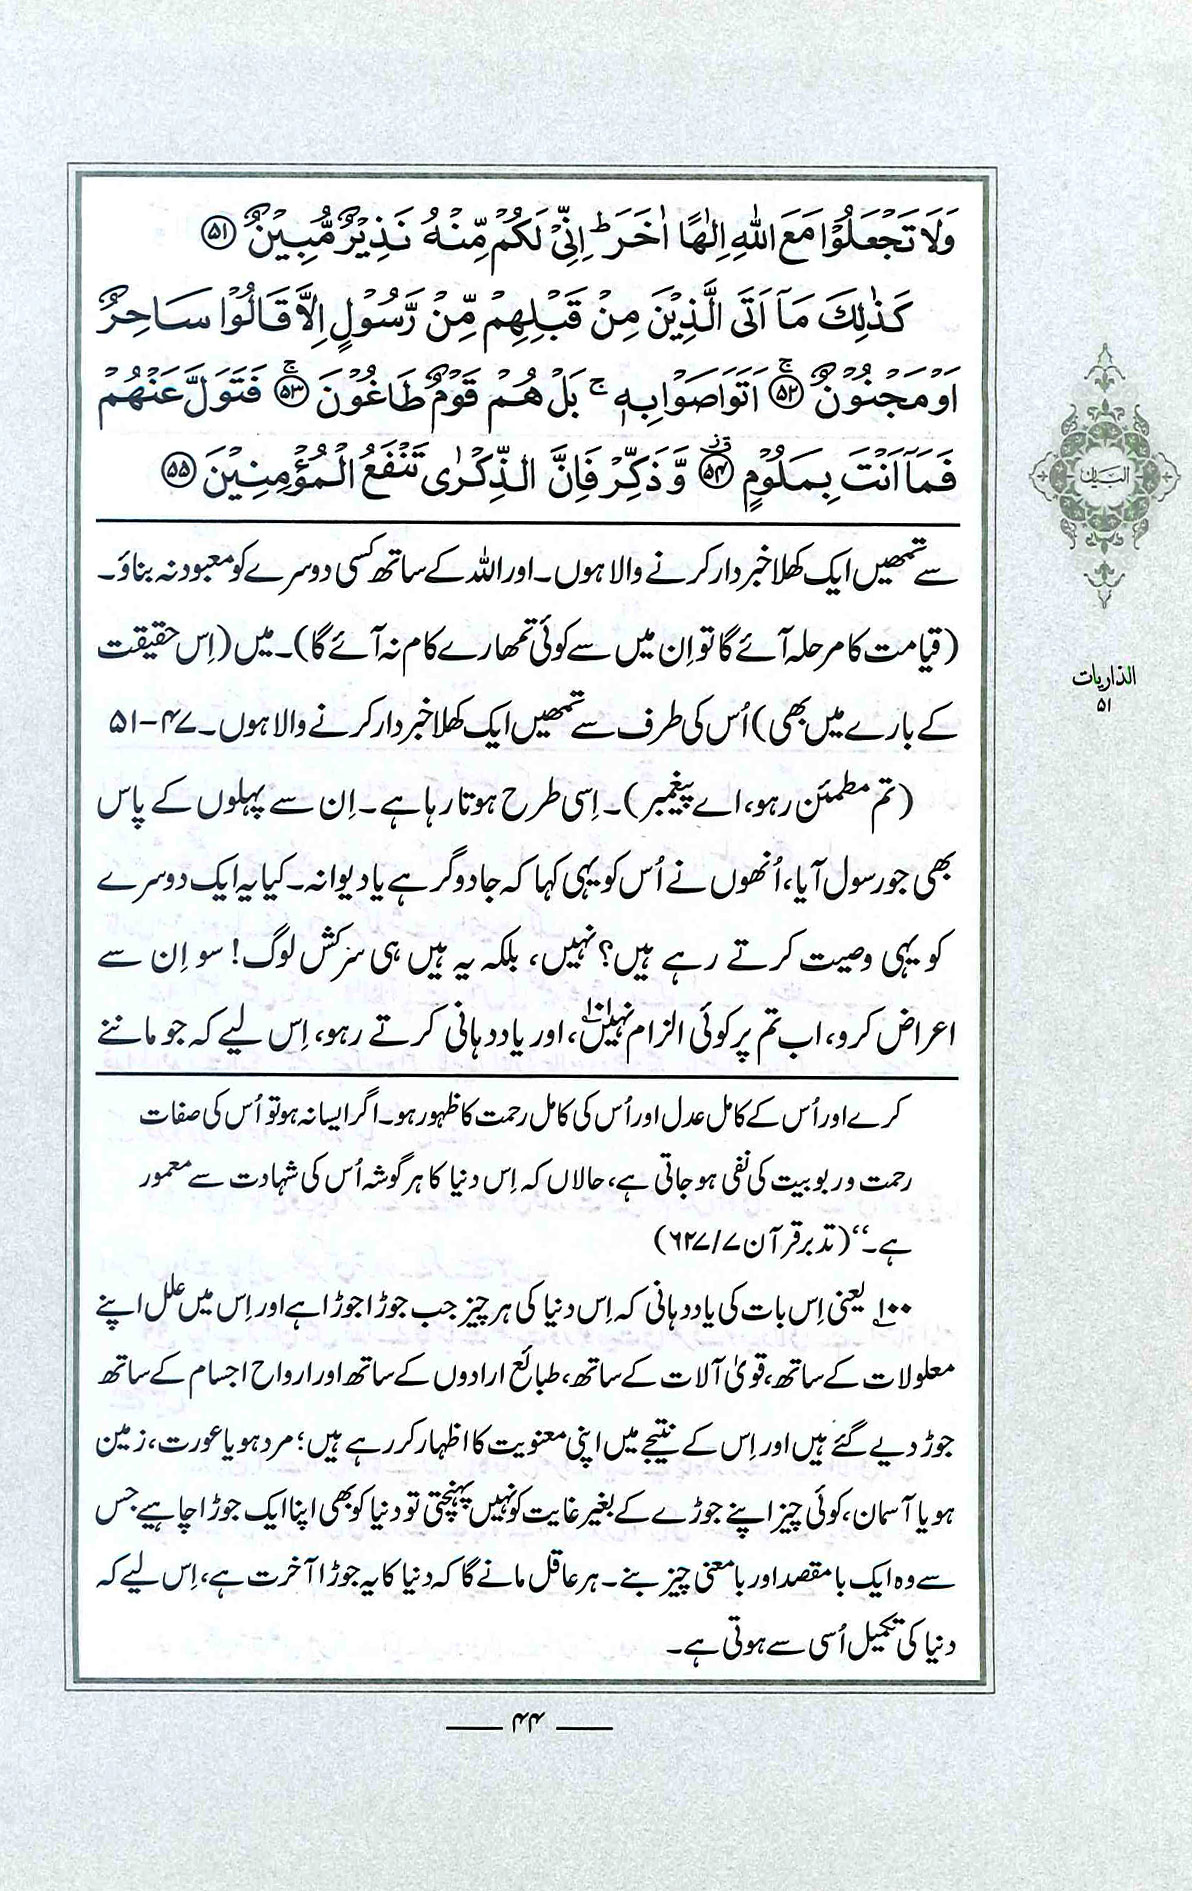 وَلَا تَجْعَلُوْا مَعَ اللّٰهِ اِلٰهًا اٰخَرَ ؕ اِنِّیْ لَكُمْ مِّنْهُ نَذِیْرٌ مُّبِیْنٌ ﴿۵۱﴾
كَذٰلِكَ مَاۤ اَتَی الَّذِیْنَ مِنْ قَبْلِهِمْ مِّنْ رَّسُوْلٍ اِلَّا قَالُوْا سَاحِرٌ
اَوْ مَجْنُوْنٌ ﴿۵۲﴾ۚ اَتَوَاصَوْا بِهٖ ۚ بَلْ هُمْ قَوْمٌ طَاغُوْنَ ﴿۵۳﴾ۚ فَتَوَلَّ عَنْهُمْ
فَمَاۤ اَنْتَ بِمَلُوْمٍ ﴿۵۴﴾ وَّ ذَكِّرْ فَاِنَّ الذِّكْرٰی تَنْفَعُ الْمُؤْمِنِیْنَ ﴿۵۵﴾
سے تمھیں ایک کھلا خبردار کرنے والا ہوں۔ اور اللہ کے ساتھ کسی دوسرے کو معبود نہ بناؤ۔
(قیامت کا مرحلہ آئے گا تو اِن میں سے کوئی تمھارے کام نہ آئے گا)۔ میں (اِس حقیقت
کے بارے میں بھی) اُس کی طرف سے تمھیں ایک کھلا خبردار کرنے والا ہوں۔ ۴۷-۵۱
(تم مطمئن رہو، اے پیغمبر)۔ اِسی طرح ہوتا رہا ہے۔ اِن سے پہلوں کے پاس
بھی جو رسول آیا، اُنھوں نے اُس کو یہی کہا کہ جادوگر ہے یا دیوانہ۔ کیا یہ ایک دوسرے
کو یہی وصیت کرتے رہے ہیں؟ نہیں، بلکہ یہ ہیں ہی سرکش لوگ! سو اِن سے
اعراض کرو، اب تم پر کوئی الزام نہیں۱۰۱، اور یاددہانی کرتے رہو، اِس لیے کہ جو ماننے
کرے اور اُس کے کامل عدل اور اُس کی کامل رحمت کا ظہور ہو۔ اگر ایسا نہ ہو تو اُس کی صفات
رحمت و ربوبیت کی نفی ہو جاتی ہے، حالاں کہ اِس دنیا کا ہر گوشہ اُس کی شہادت سے معمور
ہے۔‘‘ (تدبرقرآن ۷/ ۶۲۷)
۱۰۰ یعنی اِس بات کی یاددہانی کہ اِس دنیا کی ہر چیز جب جوڑا جوڑا ہے اور اِس میں علل اپنے
معلولات کے ساتھ، قویٰ آلات کے ساتھ، طبائع ارادوں کے ساتھ اور ارواح اجسام کے ساتھ
جوڑ دیے گئے ہیں اور اِس کے نتیجے میں اپنی معنویت کا اظہار کر رہے ہیں؛ مرد ہو یا عورت، زمین
ہو یا آسمان، کوئی چیز اپنے جوڑے کے بغیر غایت کو نہیں پہنچتی تو دنیا کو بھی اپنا ایک جوڑا چاہیے جس
سے وہ ایک بامقصد اور بامعنی چیز بنے۔ ہر عاقل مانے گا کہ دنیا کا یہ جوڑا آخرت ہے، اِس لیے کہ
دنیا کی تکمیل اُسی سے ہوتی ہے۔
۴۴
البیان
الذاریات
۵۱